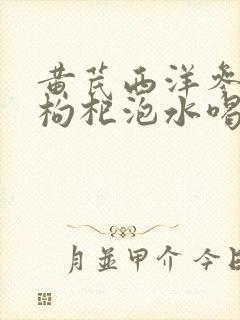 黄芪西洋参
枸杞泡水喝
月並甲介 今日